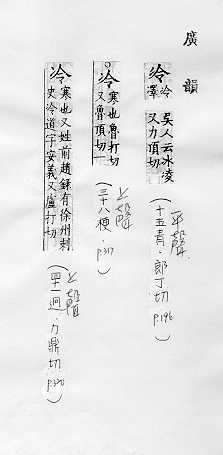 廣韻
冷 冷澤吳人云冰凌又力頂切
平聲
(十五青·郎丁切 p.196
冷 寒也魯打切又魯頂切
上聲
(三十八梗·p.317)
冷 寒也又姓前趙錄有徐州刺史冷道字安義又盧打切
上聲
(四十一迥·力鼎切 p.320)